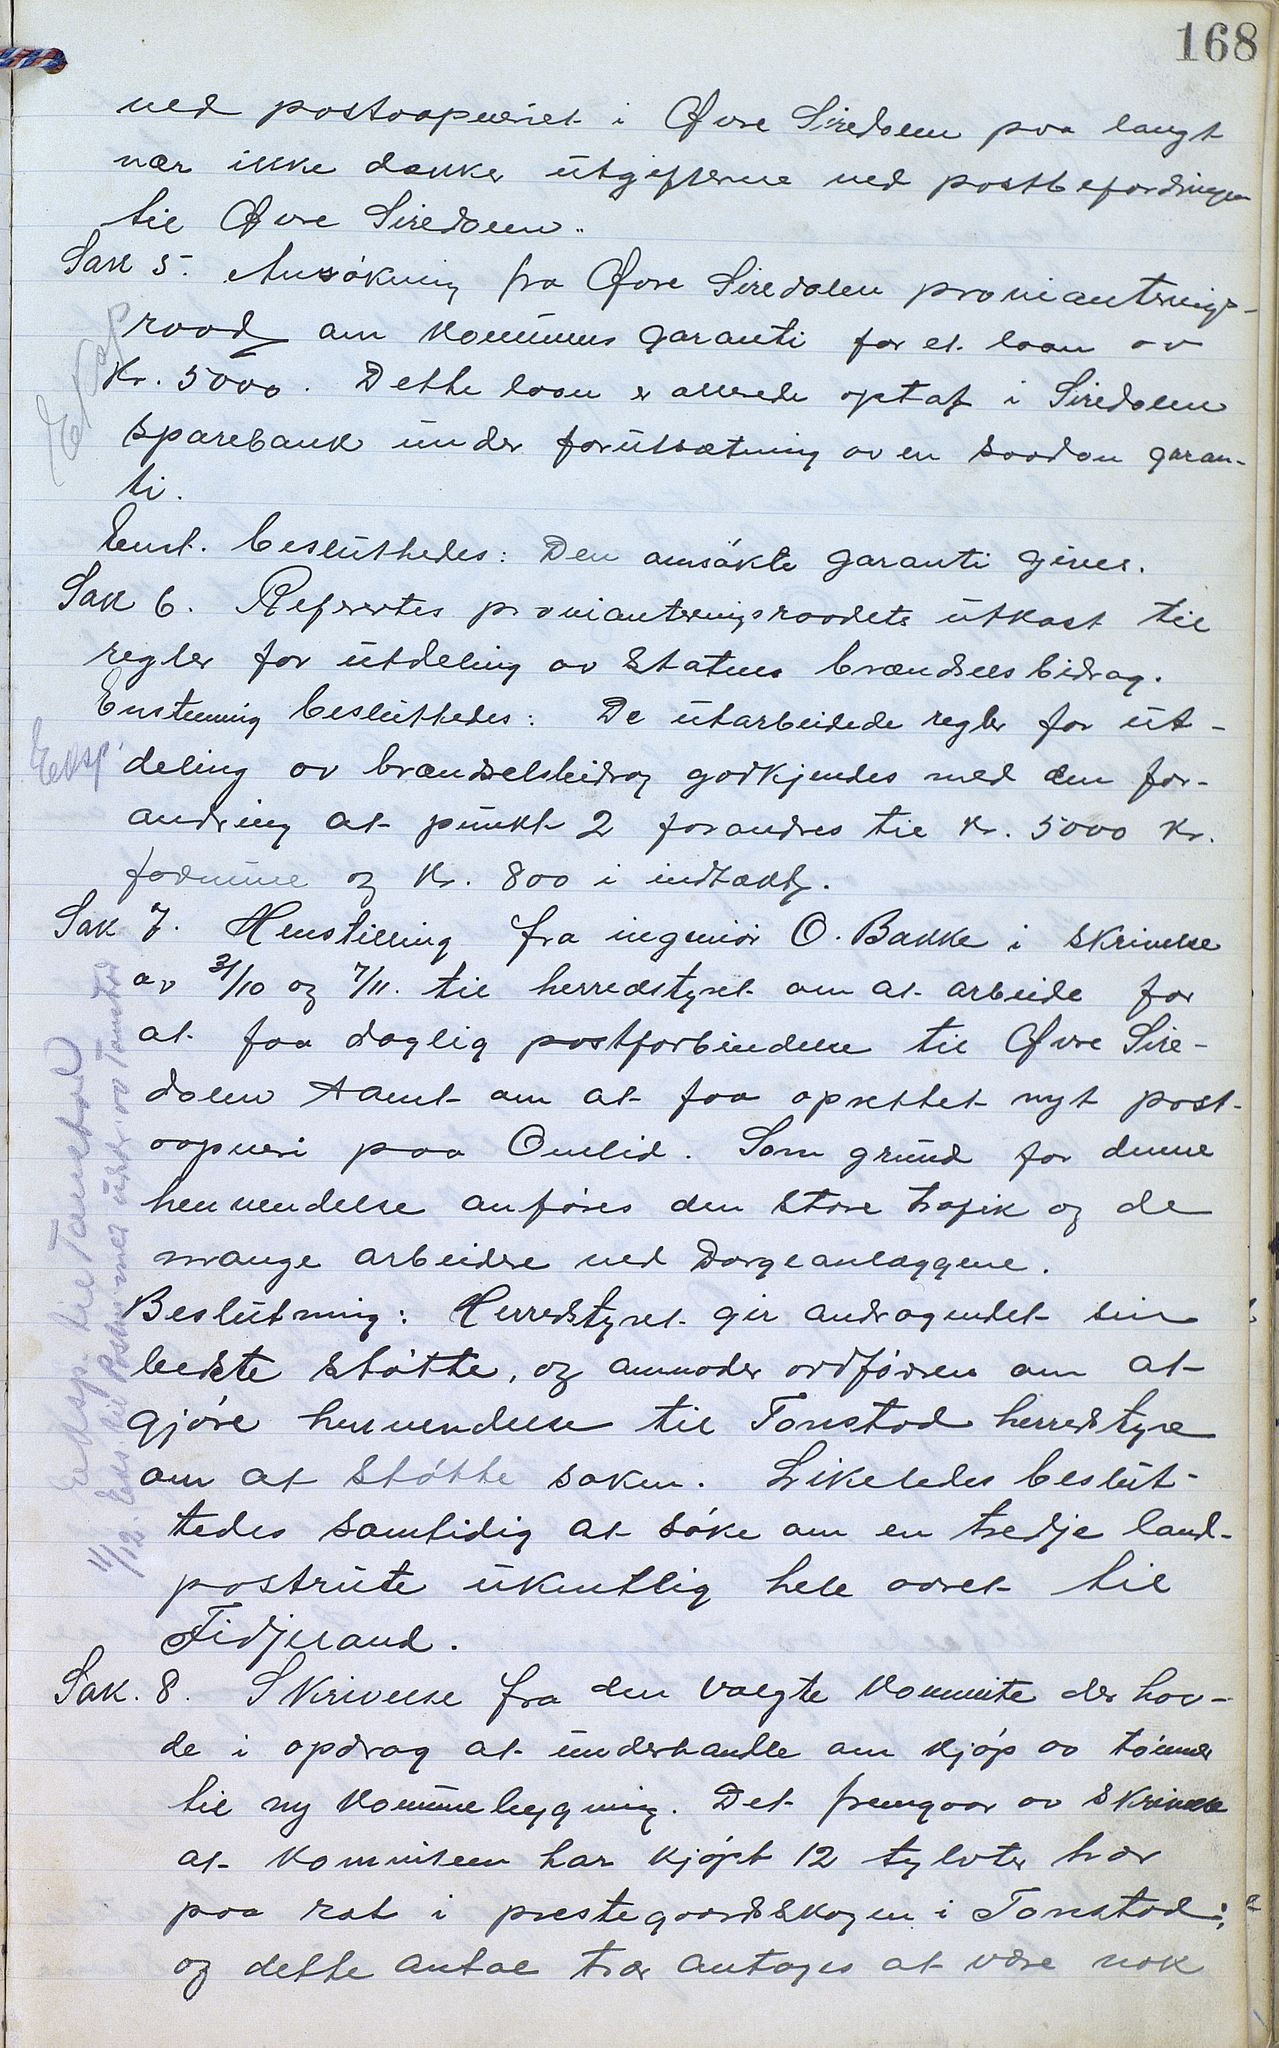 168
ved postaapneriet i Øvre Siredalen paa langt
nær ikke dækker utgifterne ved postbefordringen
til Øvre Siredalen.
Sak 5. Ansökning fra Øvre Siredalen provianterings-
raad om kommunens garanti for et laan av
Kr. 5000. Dette laan er allerede optat i Siredalen
sparebank under forutsætning av en saadan garan-
ti.
Enst. besluttedes: Den ansökte garanti gives.
Sak 6. Refertes provianteringsraadets utkast til
regler for utdeling av statens brændselsbidrag.
Enstemmig besluttedes: De utarbeidede regler for ut-
deling av brændselsbidrag godkjendes med den for-
andring at punkt 2 forandres til kr. 5000 kr.
formue og Kr. 800 i indtækt.
Sak 7. Henstilling fra ingeniör O. Bakke i skrivelse
av 3/10 og 7/11. til herredstyret om at arbeide for
at faa daglig postforbindelse til Øvre Sire-
dalen samt om at faa oprettet nyt post-
aapneri paa Omlid. Som grund for denne
henvendelse anføres den store trafik og de
mange arbeidere ved Dorgeanlæggene.
Beslutning: Herredstyret gir andragendet sin
bedste støtte, og anmoder ordføreren om at
gjøre henvendelse til Tonstad herredstyre
om at støtte saken. Likeledes beslut-
tedes samtidig at søke om en tredje land-
postrute ukentlig hele aaret til
Fidjeland.
Sak. 8. Skrivelse fra den valgte komite der hav-
de i opdrag at underhandle om kjøp av tømmer
til ny kommunebygning. Det fremgaar av skrivelse
at komiteen har kjøpt 12 tylvter trær
paa rot i prestegaardsskogen i Tonstad;
og dette antal trær antages at være nok
Eksp
Eksp.
Eksp. til Tonstad
11/12. Eds. til Postm med utskr. av Tonstad